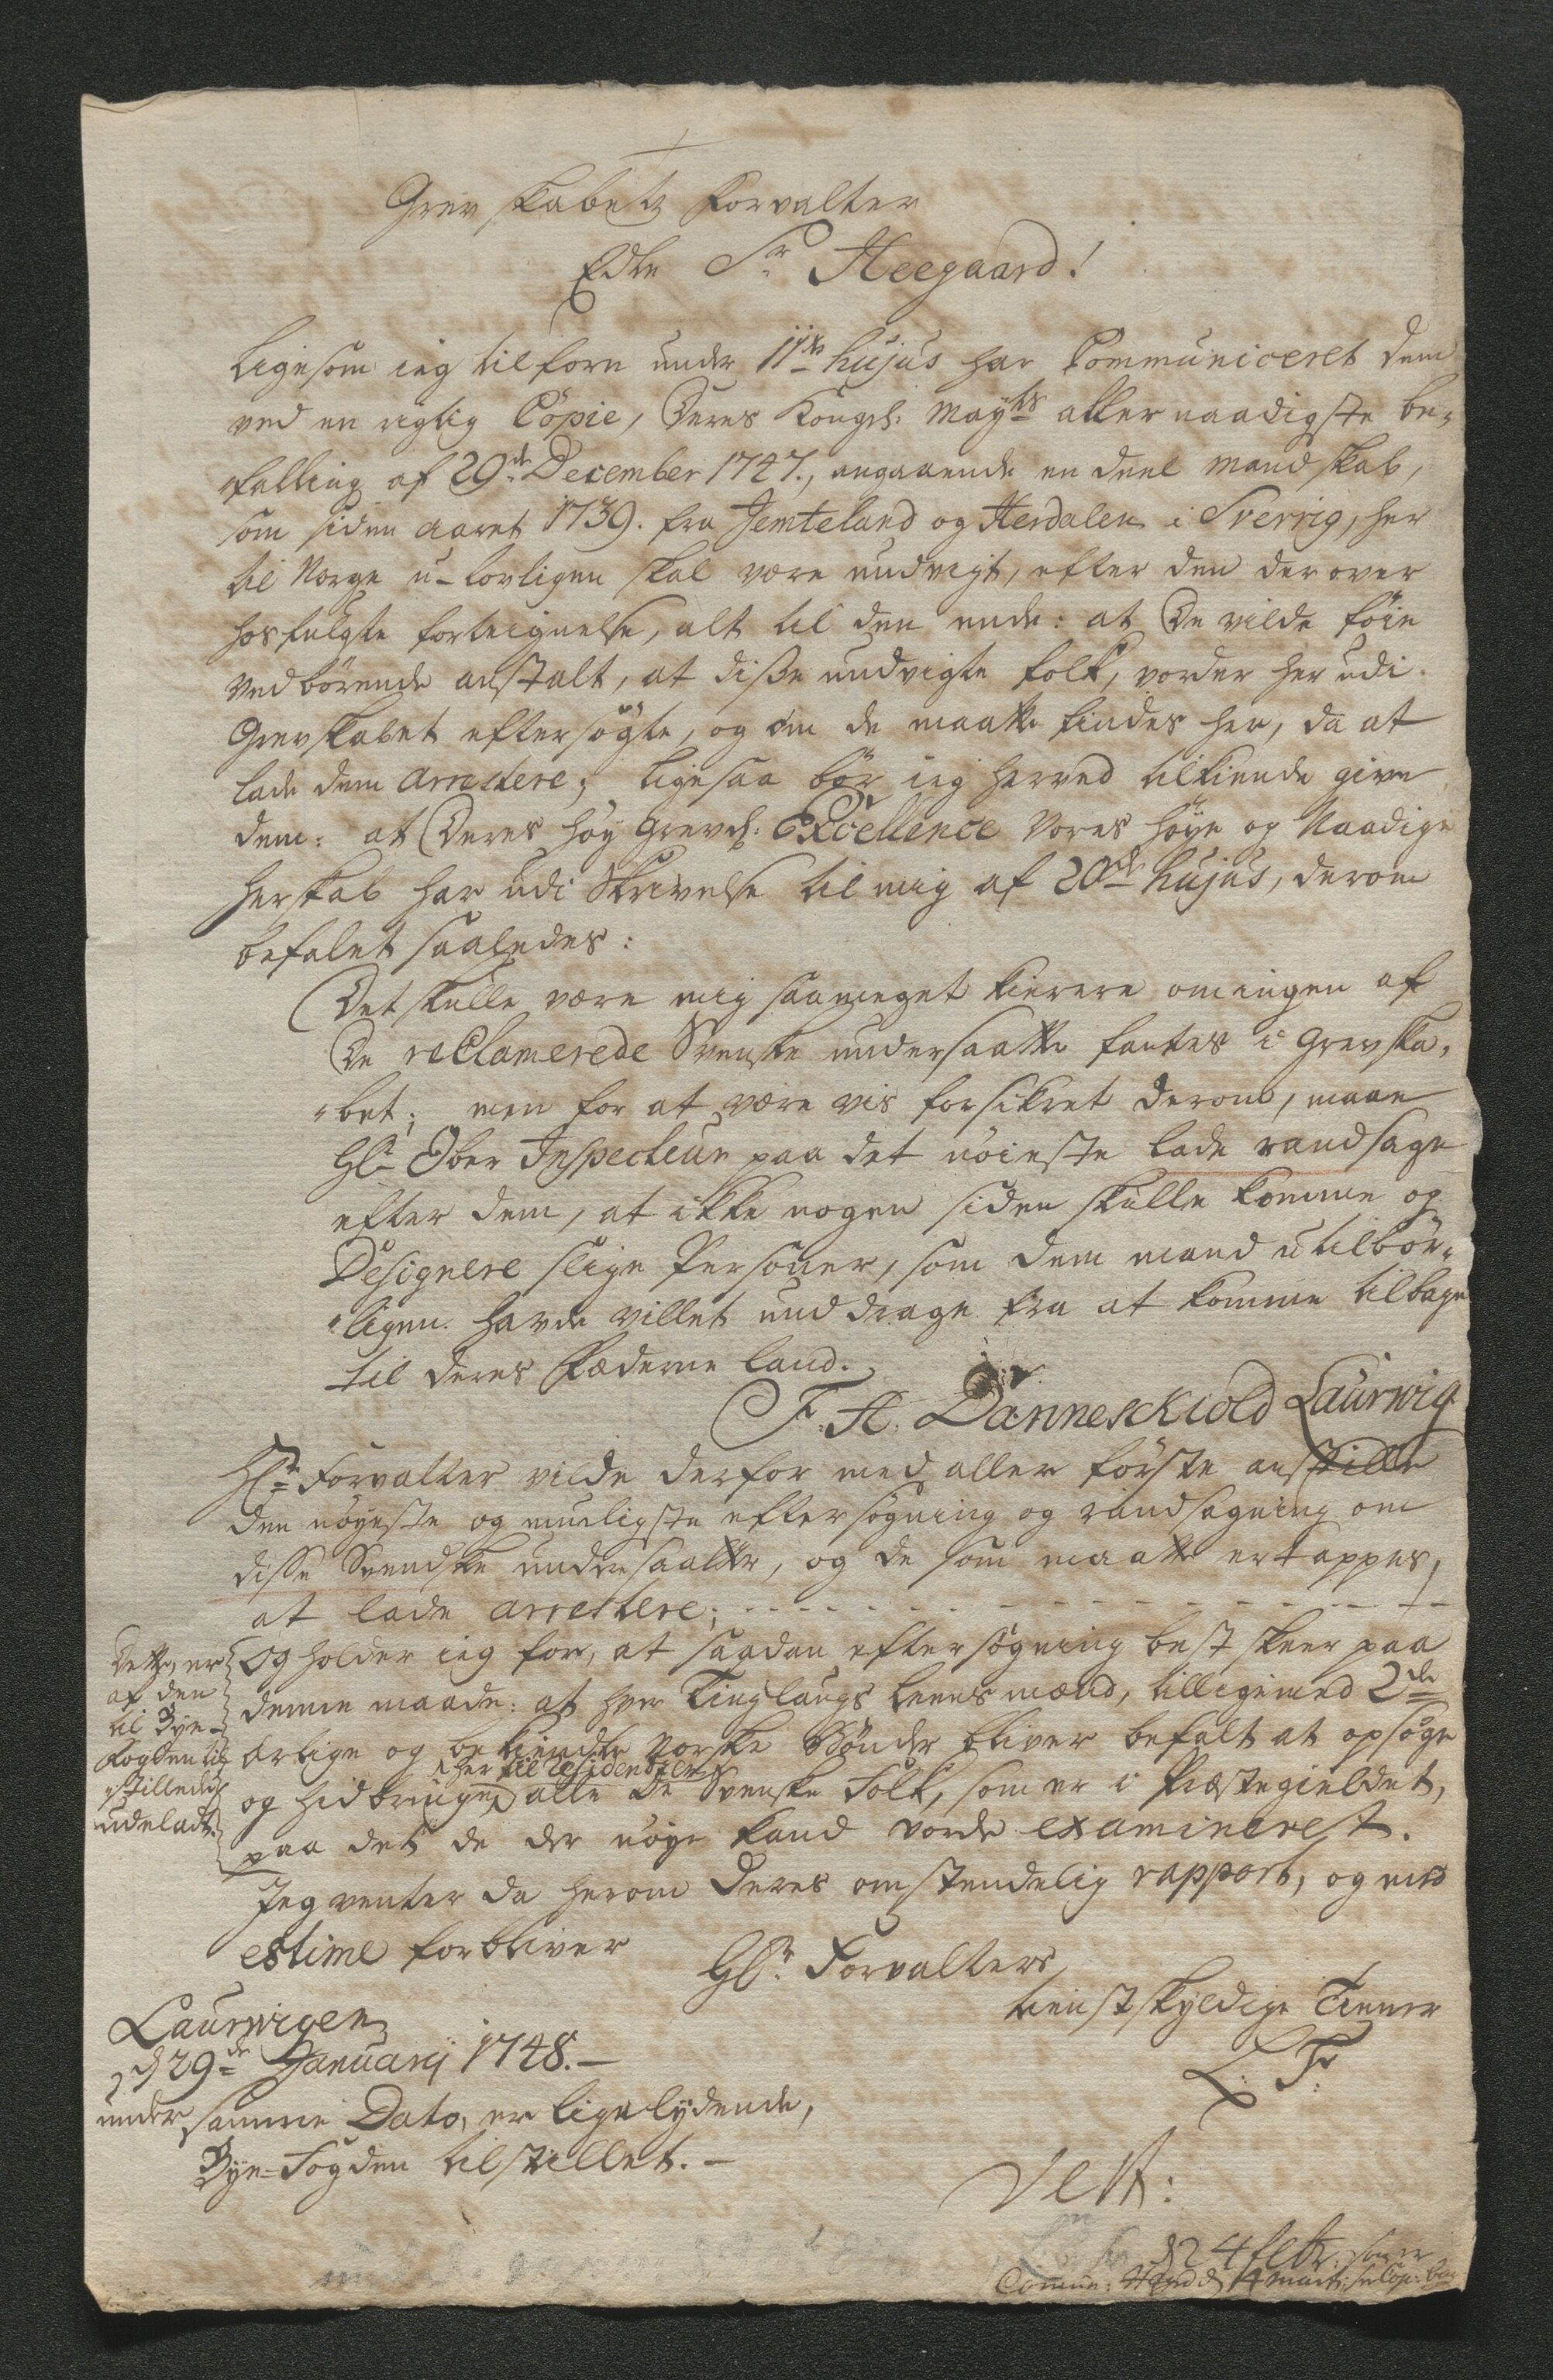 Grevskabetz Forvalter
Edle Sr. Heegaard!
Ligesom ieg tilforn under 11te hujus har Communiceret dem
ved en rigtig Copie, Deres Kongel: Mayts allernaadigste be-
falling af 29de December 1747., angaaende en deel mandskab,
som siden aaret 1739. fra Jemteland og Herdalen i Sverrig, her
til Norge u-lovligen skal være undvigt, efter den derover
hosfulgte forteignelse, alt til den ende: at De vilde föie
vedbörende anstalt, at diße undvigte folk, vorder her udi
Grevskabet eftersögte, og om de maatte findes her, da at
lade dem arrestere; ligesaa bör ieg herved tilkiende give
dem: at Deres Höy Grevel: Excellence Vores Höye og Naadige
Herskab har udi Skrivelse til mig af 20de hujus, derom
befalet saaledes:
Det skulle være mig saameget kierere om ingen af
De reclamerede Svenske undersaatte fantes i Grevska-
bet; men for at være vis forsikret derom, maae
Hl. Ober Inspecteur paa det nöieste lade randsage
efter dem, at ikke nogen siden skulle komme og
Designere slige Personer, som dem mand utilbör-
ligen havde villet unddrage fra at komme tilbage
til deres Fæderne land.
F. A. Danneskiold Laurwig
Hl: Forvalter vilde derfor med aller förste anstille
den nöyeste og mueligste eftersögning og randsagning om
disse Svendske undersaatter, og de som maatte ertappes,
at lade arrestere;
Dette, er
af den
til Bye-
Fogden til
stillede
udeladt
og holder ieg for, at saadan eftersögning best skeer paa
denne maade: at hver Tinglaugs Leensmænd, tilligemed 2de
ærlige og bekiendte Norske Bönder bliver befalt at opsöge
her til Residencen
og hidbringe alle de Svenske Folk, som er i Præstegieldet,
paa det de der nöye kand vorde examinerest.
Jeg venter da herom Deres omstendelig rapport, og med
estime forbliver
Hl: Forvalters
tienstskyldige Tiener
Laurwigen
d 29de Januarij 1748.
under samme Dato, er ligelydende,
Bye-Fogden tilstillet.
d 24 febr:
14 marti